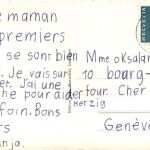 e maman
premiers
se sont bien
. Je vais sur
et. J'ai une
he pour aider
foin. Bons
rs
anja.
Mme Oksalar
10 bourg-
four. Cher
Herzig
Genève
HELVETIA